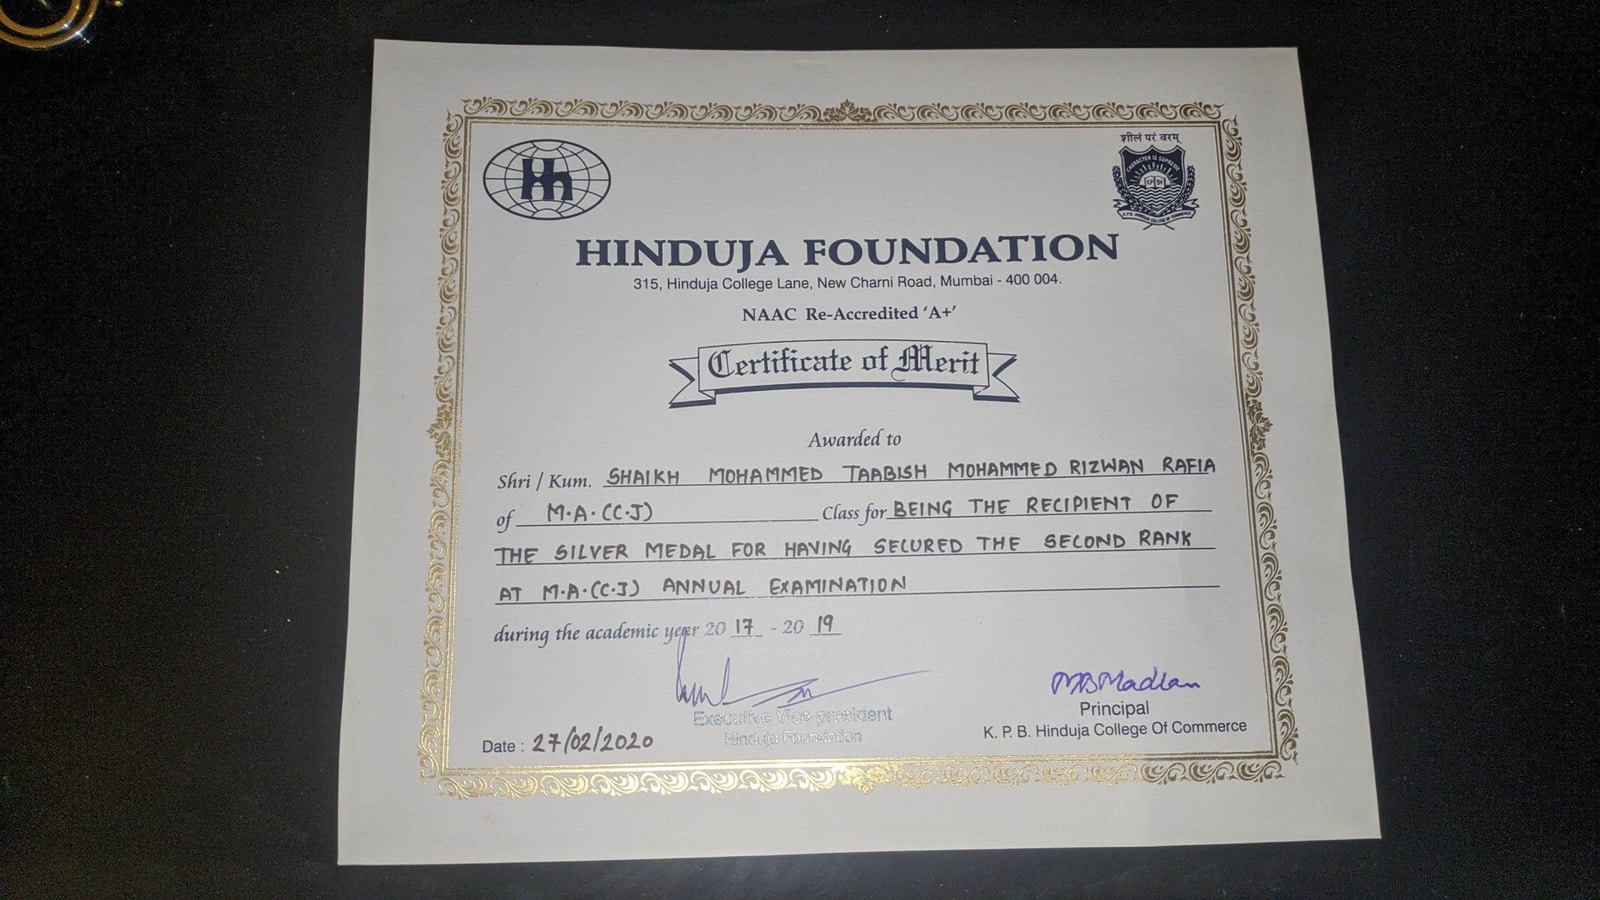 शीलं परं वरम्
CHARACTER IS SUPREME
K.P.B. HINDUJA COLLEGE OF COMMERCE
HINDUJA FOUNDATION
315, Hinduja College Lane, New Charni Road, Mumbai - 400 004.
NAAC Re-Accredited 'A+'
Certificate of Merit
Awarded to
Shri / Kum. SHAIKH MOHAMMED TAABISH MOHAMMED RIZWAN RAFIA
of M.A. (C.J) Class for BEING THE RECIPIENT OF
THE SILVER MEDAL FOR HAVING SECURED THE SECOND RANK
AT M.A.(C.J) ANNUAL EXAMINATION
during the academic year 2017 - 2019
MBMadlan
Executive Vice-president
Hinduja Foundation
Principal
K. P. B. Hinduja College Of Commerce
Date : 27/02/2020